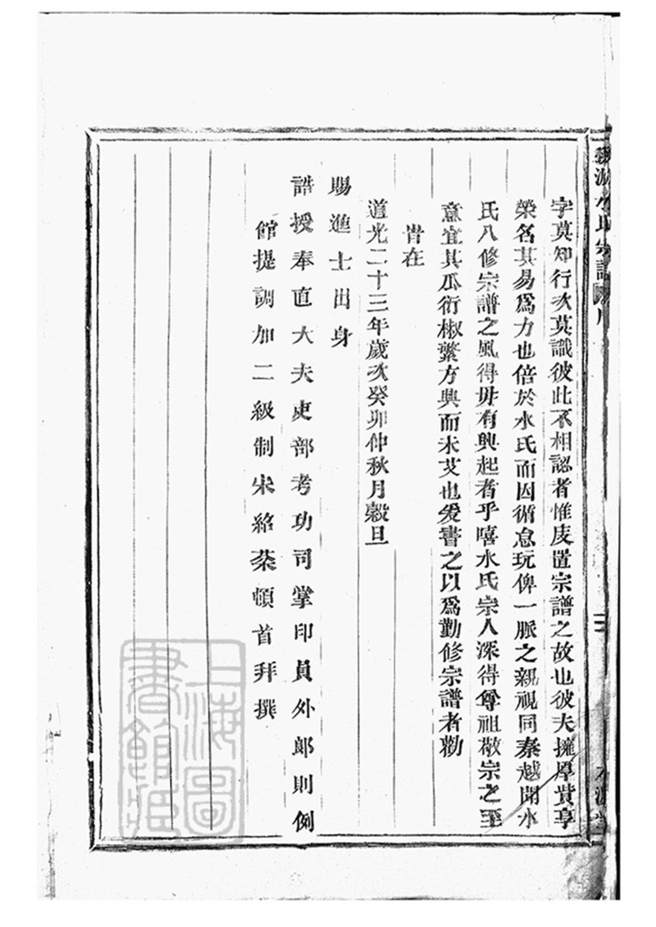 字莫知行次莫識彼此不相認者惟庋置宗譜之故也彼夫擁厚貲享
榮名其易為力也倍於水氏而因循怠玩俾一脈之親視同秦越聞水
氏八修宗譜之風得毋有興起者乎嘻水氏宗人深得尊祖敬宗之至
意宜其瓜衍椒蕃方興而未艾也爰書之以為勤修宗譜者勸
旹在
道光二十三年歲次癸卯仲秋月穀旦
賜進士出身
誥授奉直大夫吏部考功司掌印員外郎則例
館提調加二級制宋紹棻頓首拜撰
水氏宗譜
上海圖書館藏